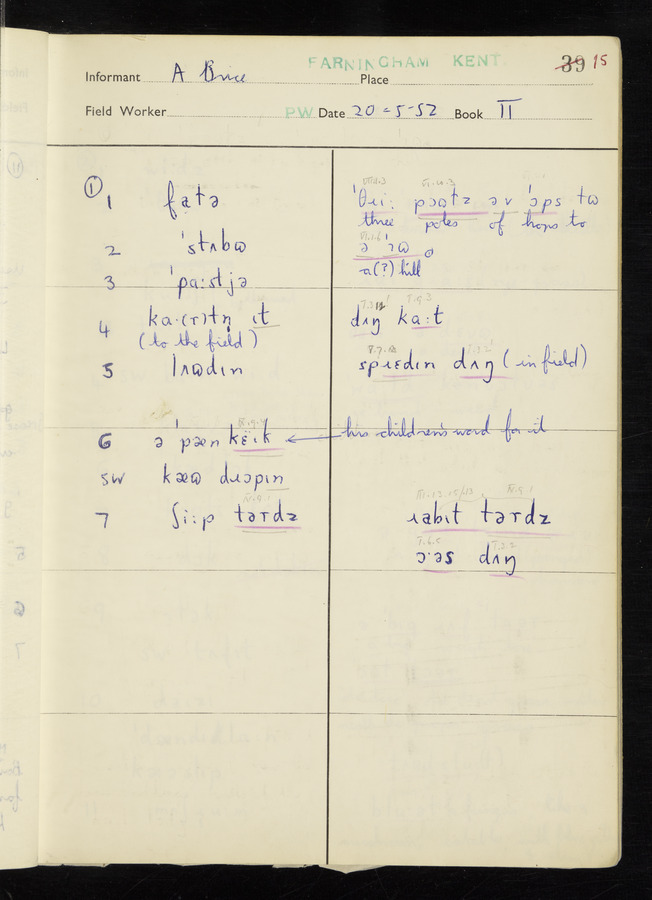 FARNINGHAM KENT.
39 15
Informant A Brice Place
Field Worker PW Date 20-5-52 Book II
① 1 fatə
ˈθɹiː pɔətz əv ˈɔps tʊ
three potes of hops to
2 ˈstʌbʊ
a(?) hill
3 ˈpaːstjə
4 kaˑ(r)tɪŋ ɪt
(to the field)
dʌŋ kaːt
5 ˈlʌʊdɪn
spɹɛdɪn dʌŋ (in field)
6 ə ˈpæn këɪk
his children's word for it
SW kæʊ dɹɔpɪn
7 ʃiːp tərdz
ɹabɪt tərdz
ɔːəs dʌŋ